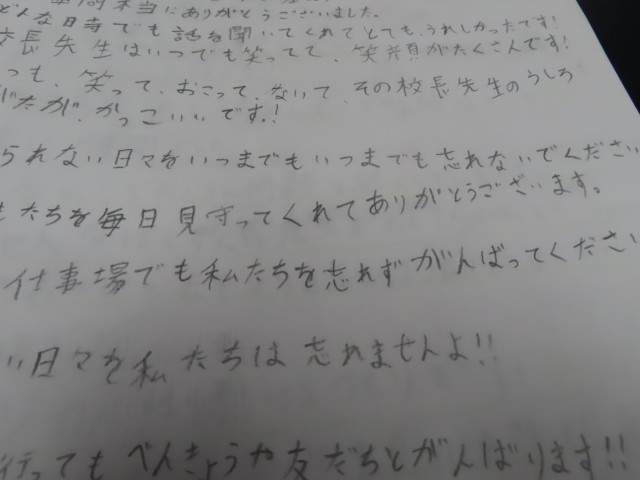 本当にありがとうございました。
どんな日寺でも話を聞いてくれてとても、うれしかったです!
校長先生はいつでも笑ってて、笑顔がたくさんです!
っも、笑って、おこって、ないて、その校長先生のうしろ
がたが、かっこいいです!
られない日々をいつまでもいつまでも忘れないでください
たちを毎日見守ってくれてありがとうございます。
仕事場でも私たちを忘れずがんばってくださ
い日々を私たちは忘れませんよ!!
行ってもべんきょうや友だちとがんばります!!